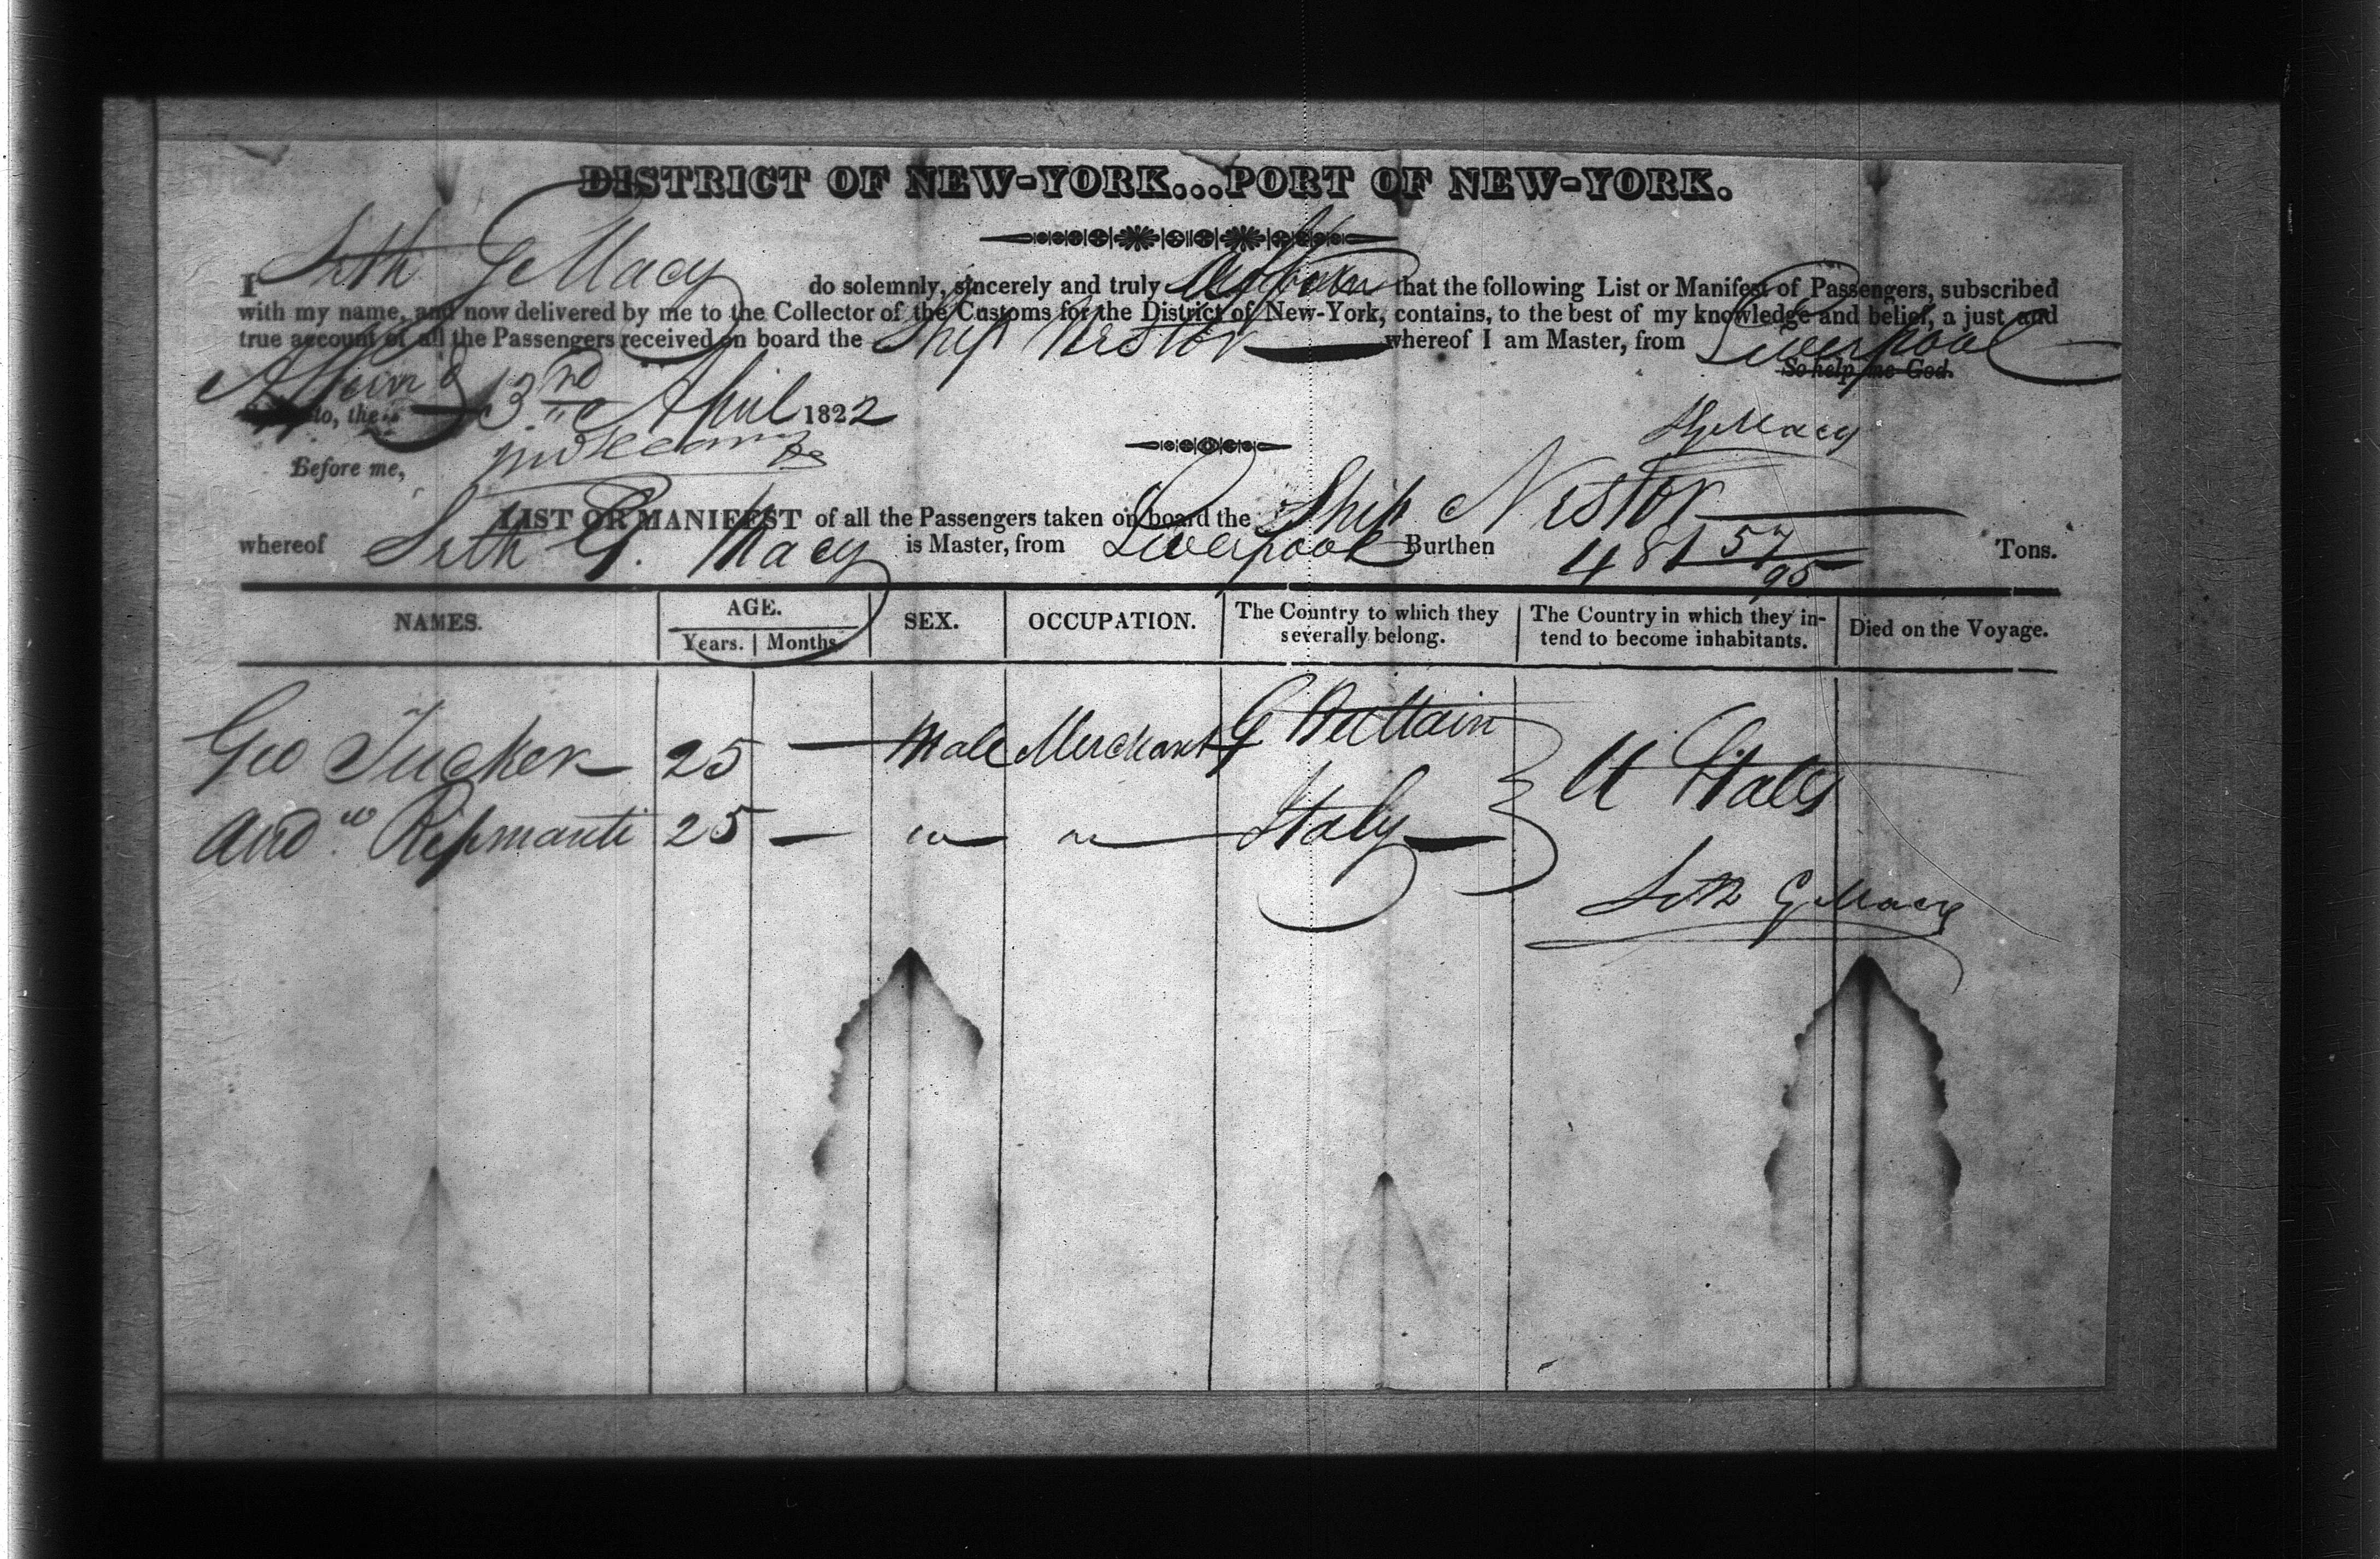 DISTRICT OF NEW-YORK...PORT OF NEW-YORK.
I Seth G Macy do solemnly, sincerely and truly affirm that the following List or Manifest of Passengers, subscribed
with my name, and now delivered by me to the Collector of the Customs for the District of New-York, contains, to the best of my knowledge and belief, a just and
true account of all the Passengers received on board the Ship Nestor whereof I am Master, from Liverpool
So help me God.
Affirmd to, the 3rd April 1822
S G Macy
Before me,
LIST OR MANIFEST of all the Passengers taken on board the Ship Nestor
whereof Seth G. Macy is Master, from Liverpool Burthen 481 57/95 Tons.
NAMES. AGE. Years. Months. SEX. OCCUPATION. The Country to which they severally belong. The Country in which they intend to become inhabitants. Died on the Voyage.
Geo Tucker 25 — Male Merchant G Brittain
U States
Andw Ripmanti 25 — " " Italy
Seth G Macy